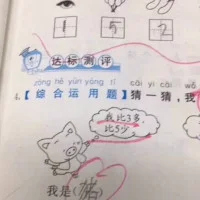 1 5 2
达标测评
zōng hé yùn yòng tí cāi yi cāi wǒ
4.【综合运用题】猜一猜，我
我比3多
比5少
我是(猪)